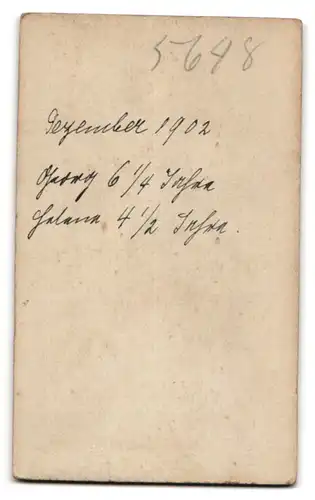 5648
Dezember 1902
Georg 6 1/4 Jahre
Helene 4 1/2 Jahre.